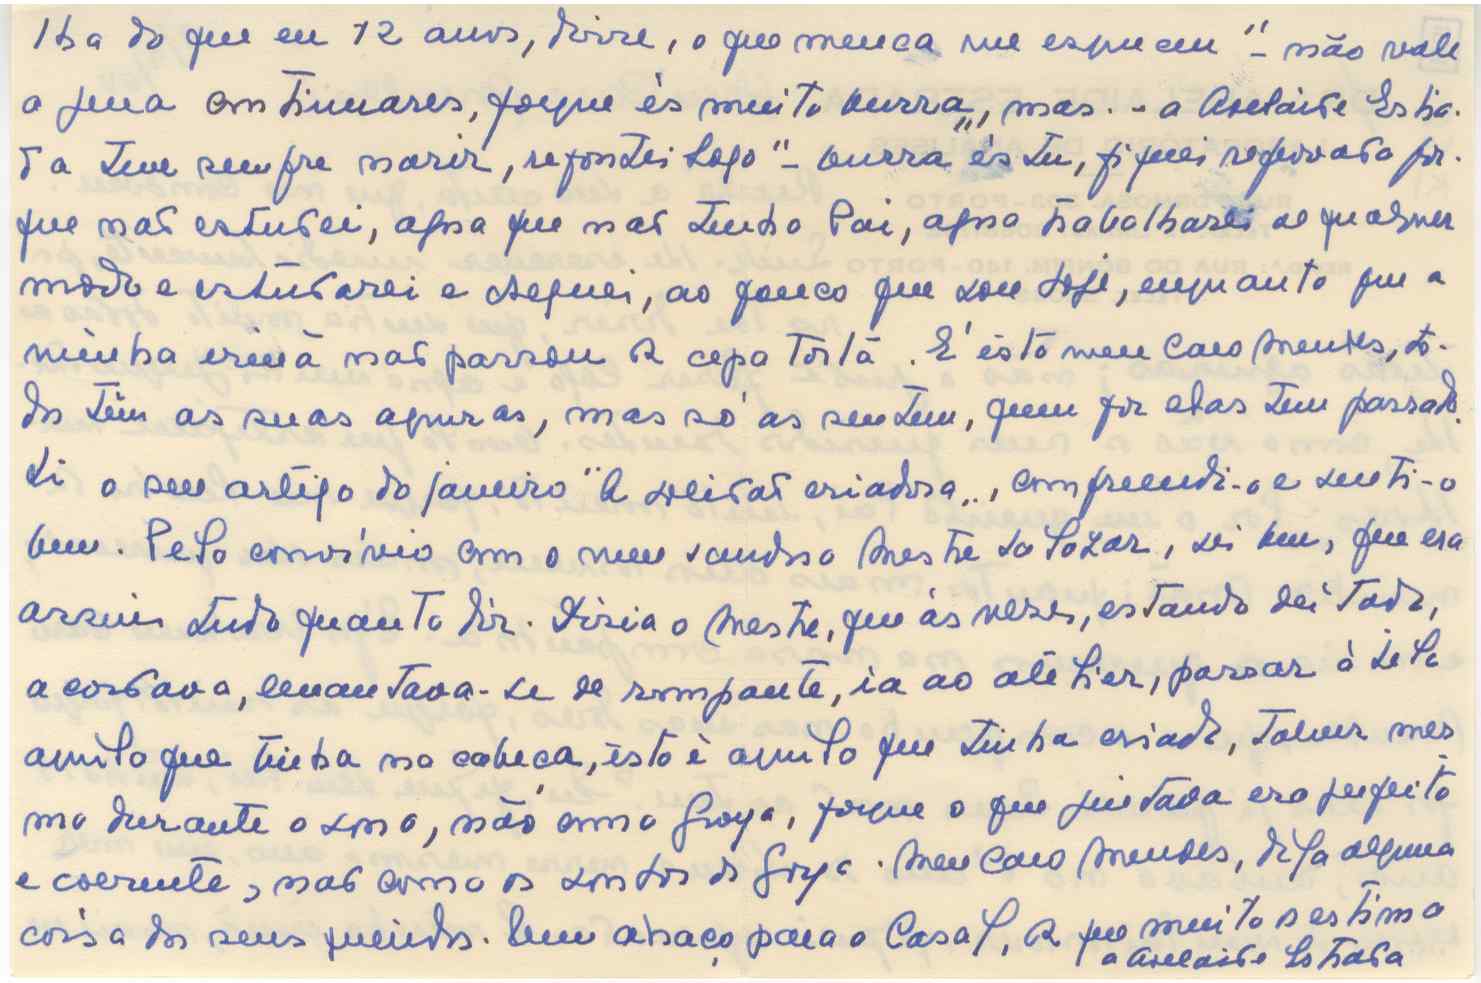 lha do que eu 12 anos, disse, o que nunca me esqueceu "- não vale
a pena continuares, porque és muito burra", mas -- a Adelaide Estra-
da teve sempre nariz, respondei logo "- burra és tu, fiquei reprovada por-
que não estudei, agora que não tenho Pai, agora trabalharei de qualquer
modo e estudarei e cheguei, ao pouco que sou hoje, enquanto que a
minha irmã não passou da cepa torta. E' isto meu Caro Mendes, to-
dos têm as suas agruras, mas só as sentem, quem por elas tem passado.
Li o seu artigo do janeiro "A solidão criadora", compreendi-o e senti-o
bem. Pelo convívio com o meu saudoso Mestre Salazar, sei bem, que era
assim tudo quanto diz. Dizia o Mestre, que às vezes, estando deitado,
acordava, levantava-se de rompante, ia ao atelier, passar à tela
aquilo que tinha na cabeça, isto é aquilo que tinha criado, talvez mes-
mo durante o sono, não como Goya, porque o que pintava era perfeito
e coerente, não como os sonhos de Goya. Meu Caro Mendes, diga alguma
coisa dos seus queridos. Um abraço para o Casal, da que muito o estima
a Adelaide Estrada